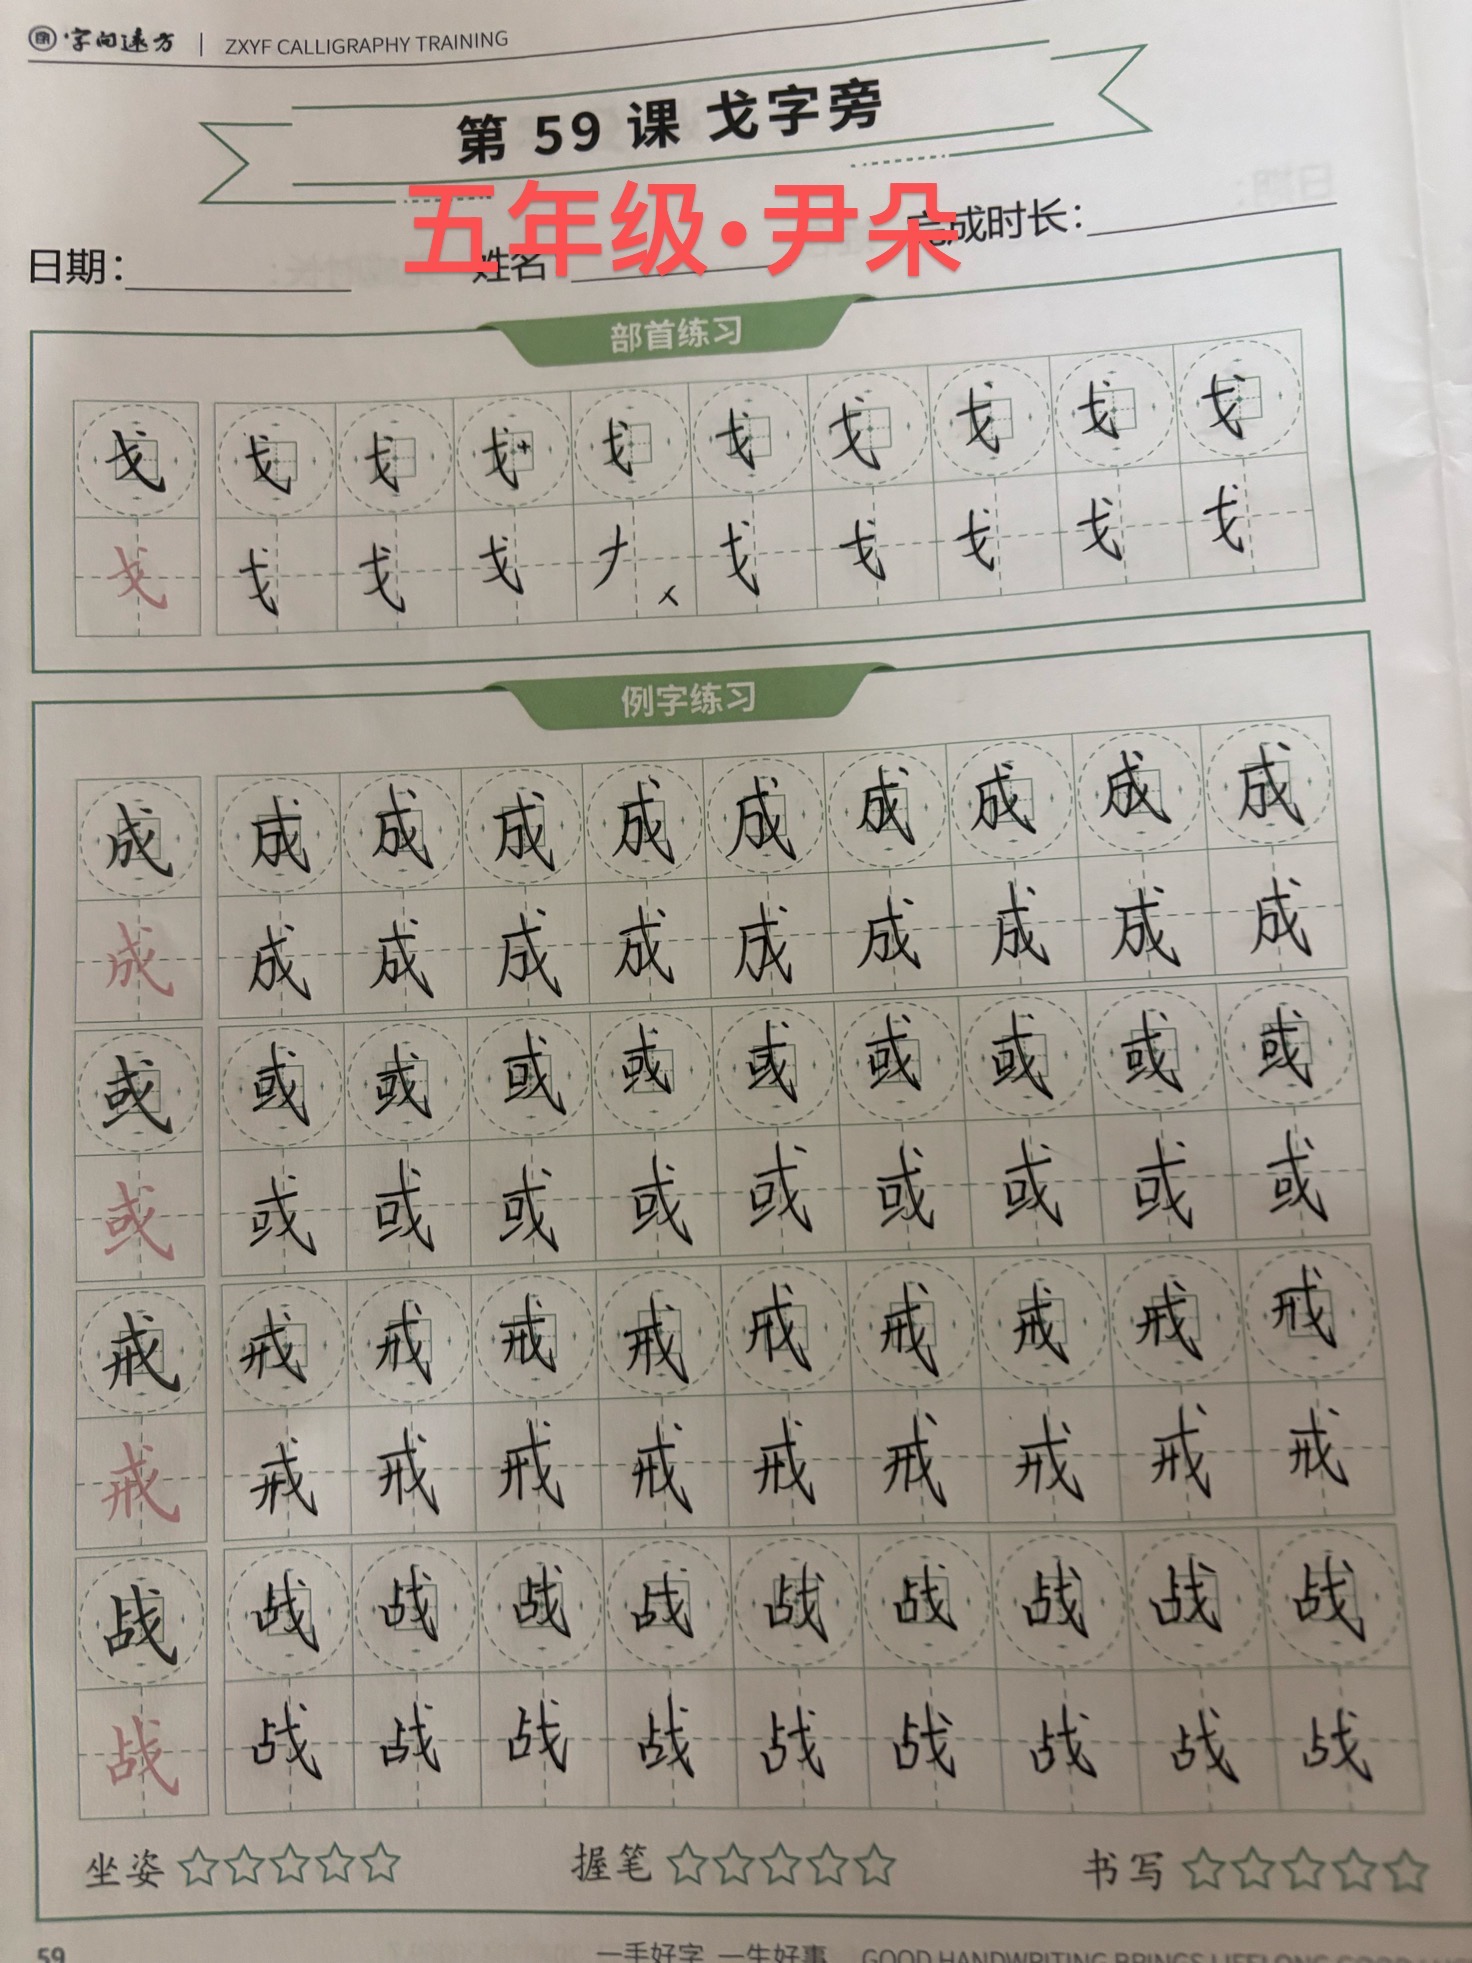 字向远方 | ZXYF CALLIGRAPHY TRAINING
第 59 课 戈字旁
五年级·尹朵
日期： 姓名 完成时长：
部首练习
戈 戈 戈 戈 戈 戈 戈 戈 戈 戈
戈 戈 戈 戈 戈 戈 戈 戈 戈
例字练习
成 成 成 成 成 成 成 成 成 成
成 成 成 成 成 成 成 成 成 成
或 或 或 或 或 或 或 或 或 或
或 或 或 或 或 或 或 或 或 或
戒 戒 戒 戒 戒 戒 戒 戒 戒 戒
戒 戒 戒 戒 戒 戒 戒 戒 戒 戒
战 战 战 战 战 战 战 战 战 战
战 战 战 战 战 战 战 战 战 战
坐姿 ☆☆☆☆☆ 握笔 ☆☆☆☆☆ 书写 ☆☆☆☆☆
59 一手好字 一生好事 GOOD HANDWRITING BRINGS LIFELONG GOOD